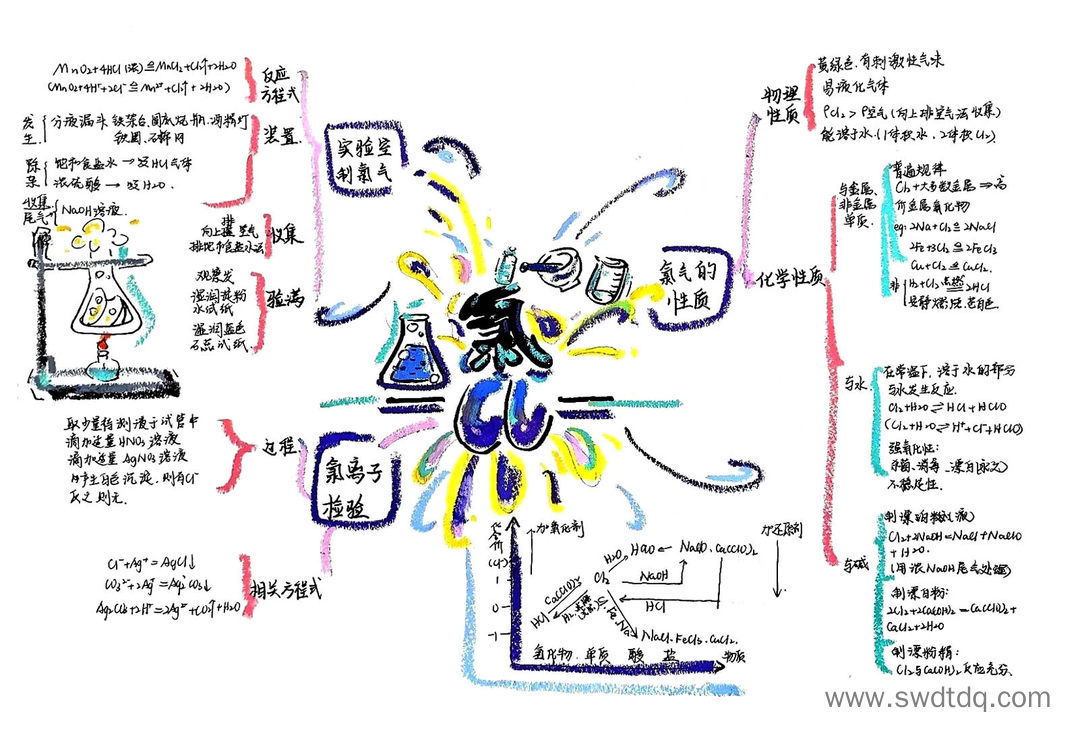 氯
CL
实验室
制氯气
反应
方程式
MnO2+4HCl(浓)≙MnCl2+Cl2↑+2H2O
(MnO2+4H⁺+2Cl⁻≙Mn²⁺+Cl2↑+2H2O)
装置
发生
分液漏斗 铁架台、圆底烧瓶、酒精灯
铁圈、石棉网
除杂
饱和食盐水 → 吸HCl气体
浓硫酸 → 吸H2O.
收集
尾气
NaOH溶液.
收集
向上排空气
排饱和食盐水法
验满
观察发
湿润淀粉
水试纸
湿润蓝色
石蕊试纸
氯离子
检验
过程
取少量待测液于试管中
滴加适量HNO3溶液
滴加适量AgNO3溶液
若产生白色沉淀,则有Cl⁻
反之则无.
相关方程式
Cl⁻+Ag⁺=AgCl↓
CO3²⁻+2Ag⁺=Ag2CO3↓
Ag2CO3+2H⁺=2Ag⁺+CO2↑+H2O
氯气的
性质
物理
性质
黄绿色.有刺激性气味
易液化气体
ρCl2>ρ空气(向上排空气法收集)
能溶于水(1体积水,2体积Cl2)
化学性质
与金属、
非金属
单质.
普通规律
Cl2+大多数金属⇒高
价金属氯化物
eg:2Na+Cl2≙2NaCl
2Fe+3Cl2≙2FeCl3
Cu+Cl2≙CuCl2.
非
H2+Cl2 点燃 2HCl
安静燃烧.苍白色.
与水
在常温下,溶于水的部分
与水发生反应.
Cl2+H2O⇌HCl+HClO
(Cl2+H2O⇌H⁺+Cl⁻+HClO)
强氧化性:
杀菌、消毒、漂白(永久)
不稳定性.
与碱
制漂白粉(液)
Cl2+2NaOH=NaCl+NaClO
+H2O.
(用浓NaOH尾气处理)
制漂白粉:
2Cl2+2Ca(OH)2=Ca(ClO)2+
CaCl2+2H2O
制漂粉精:
Cl2与Ca(OH)2反应充分.
化合价
加氧化剂
加还原剂
+1
0
-1
H2O HClO ← NaClO.Ca(ClO)2
Cl2
NaOH
HCl
Ca(ClO)2
HCl
Cu.Fe.Na
NaCl.FeCl3.CuCl2.
氢化物 单质 酸 盐 物质
www.swdtdq.com